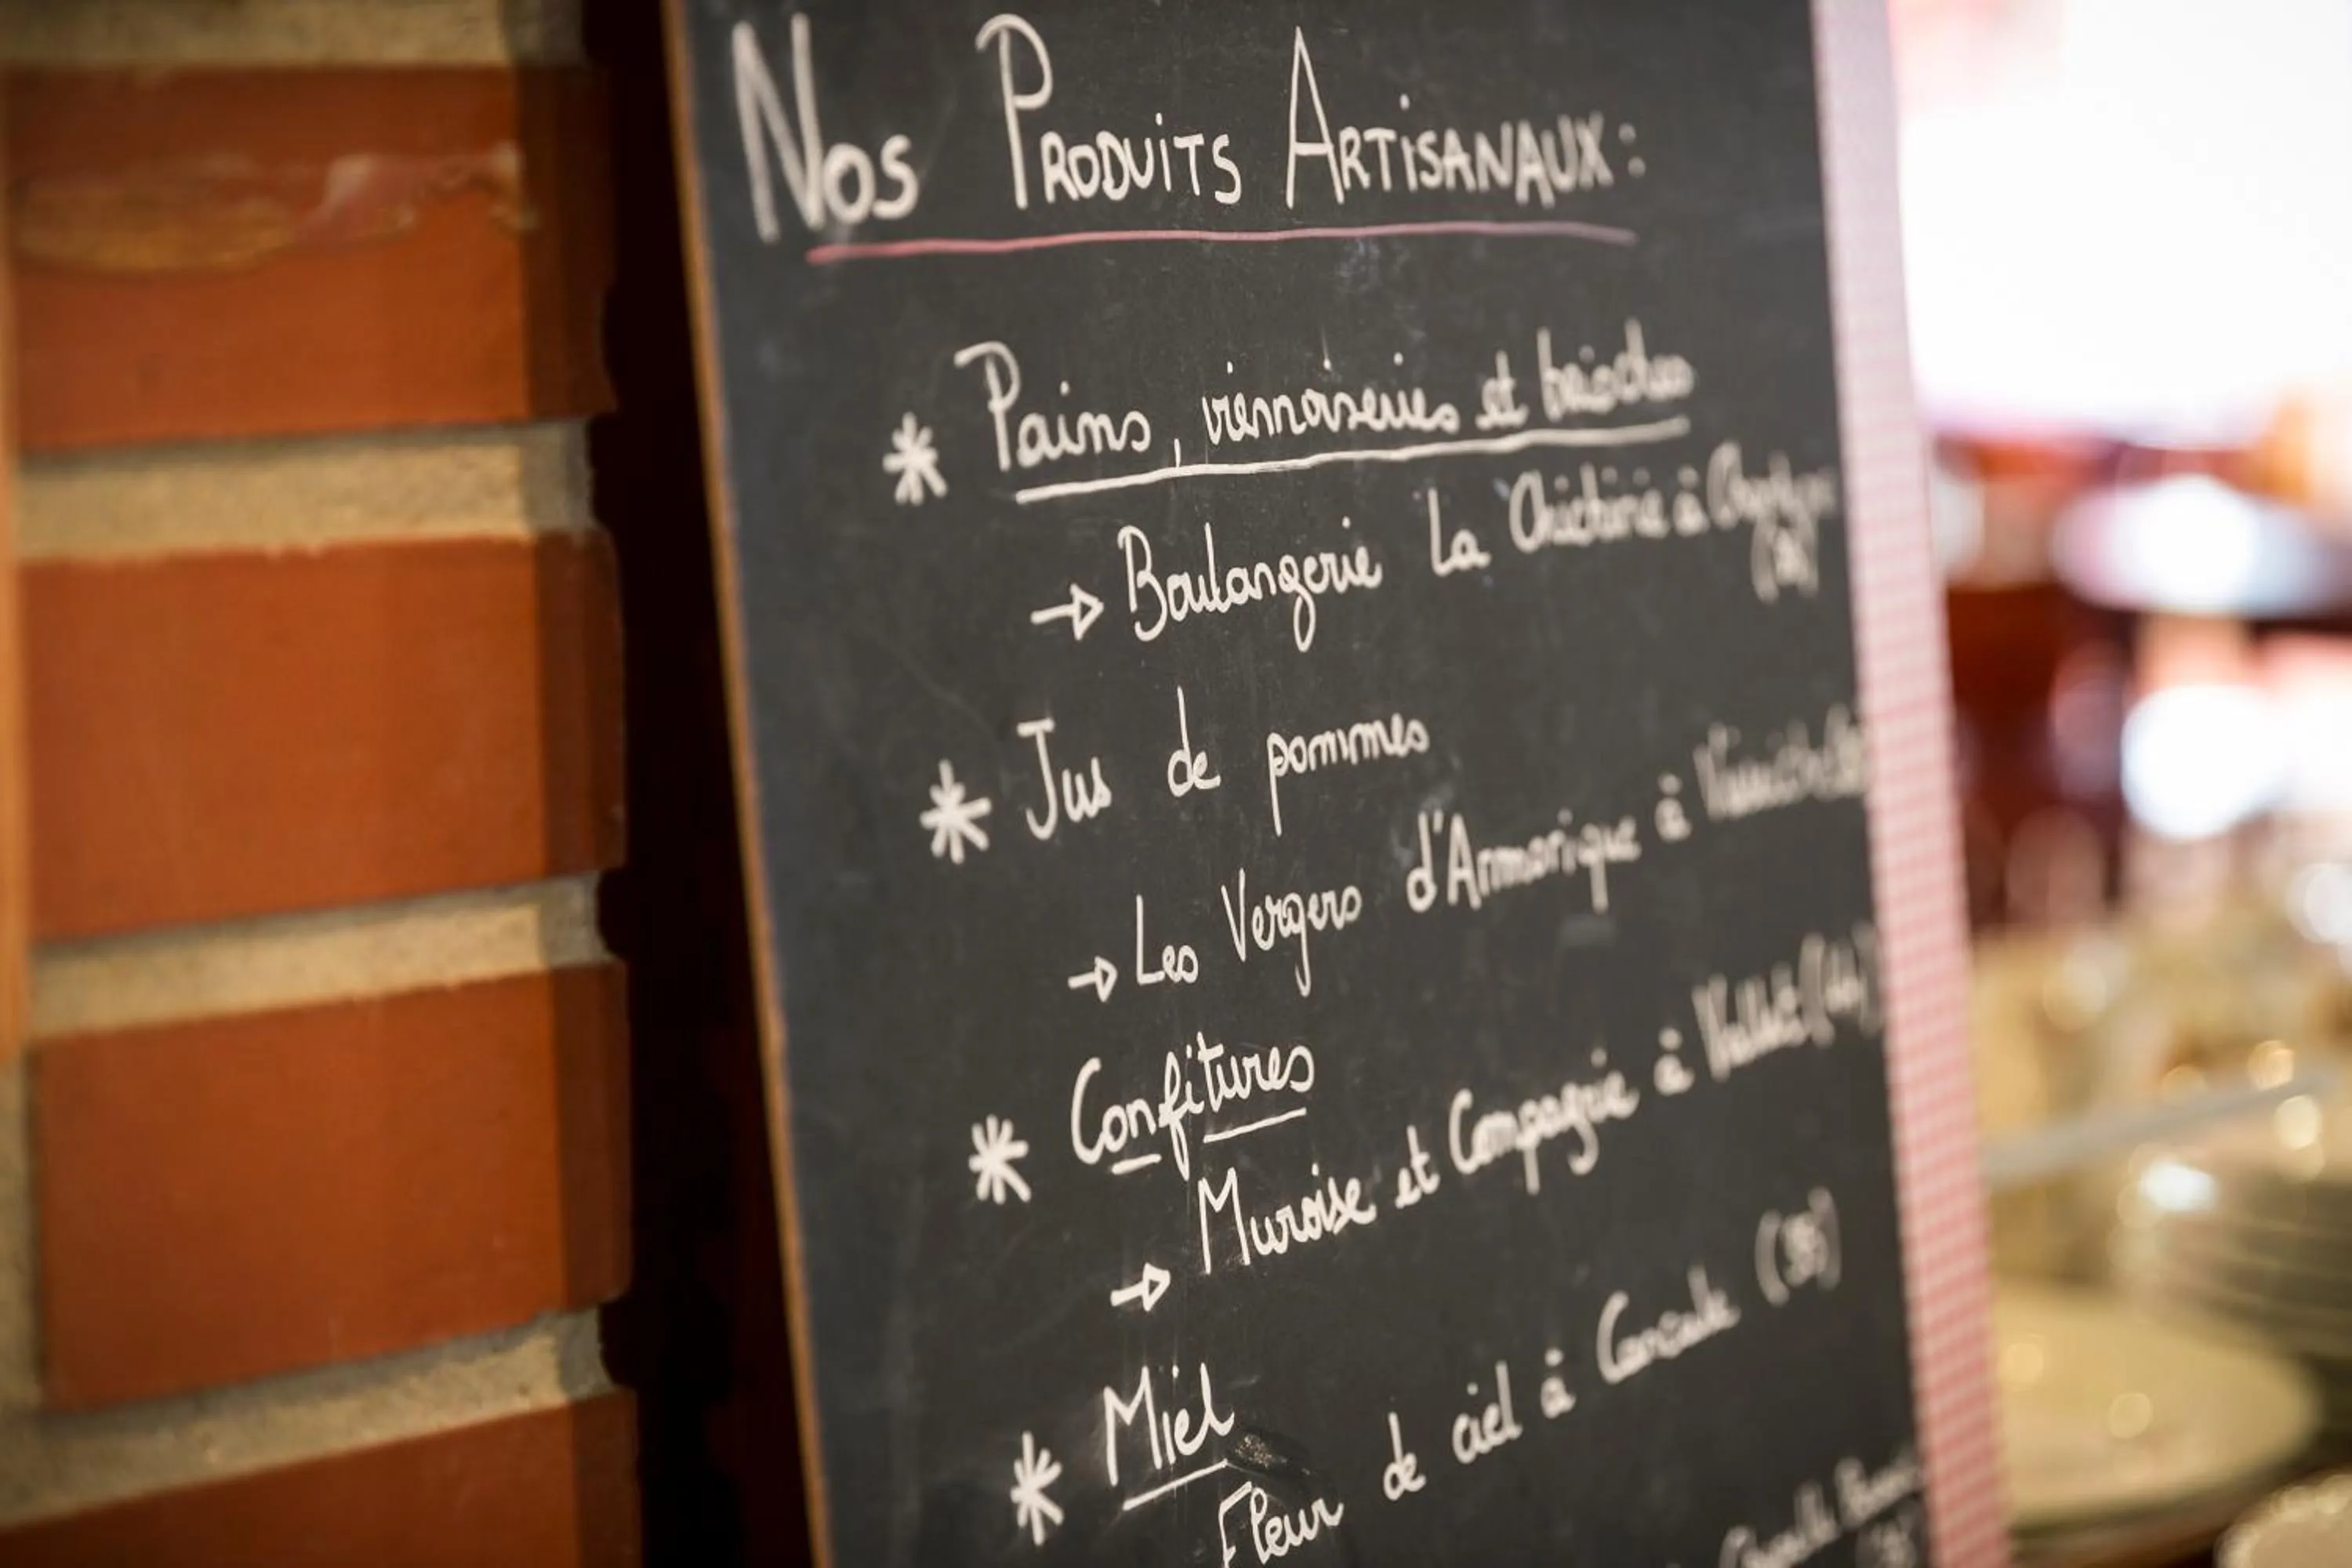 NOS PRODUITS ARTISANAUX :
* Pains, viennoiseries et brioches
→ Boulangerie La à
* Jus de pommes
→ Les Vergers d'Armorique à
* Confitures
→ Muroise et Compagnie à Vallet (44)
* Miel
Fleur de ciel à Cancale (35)